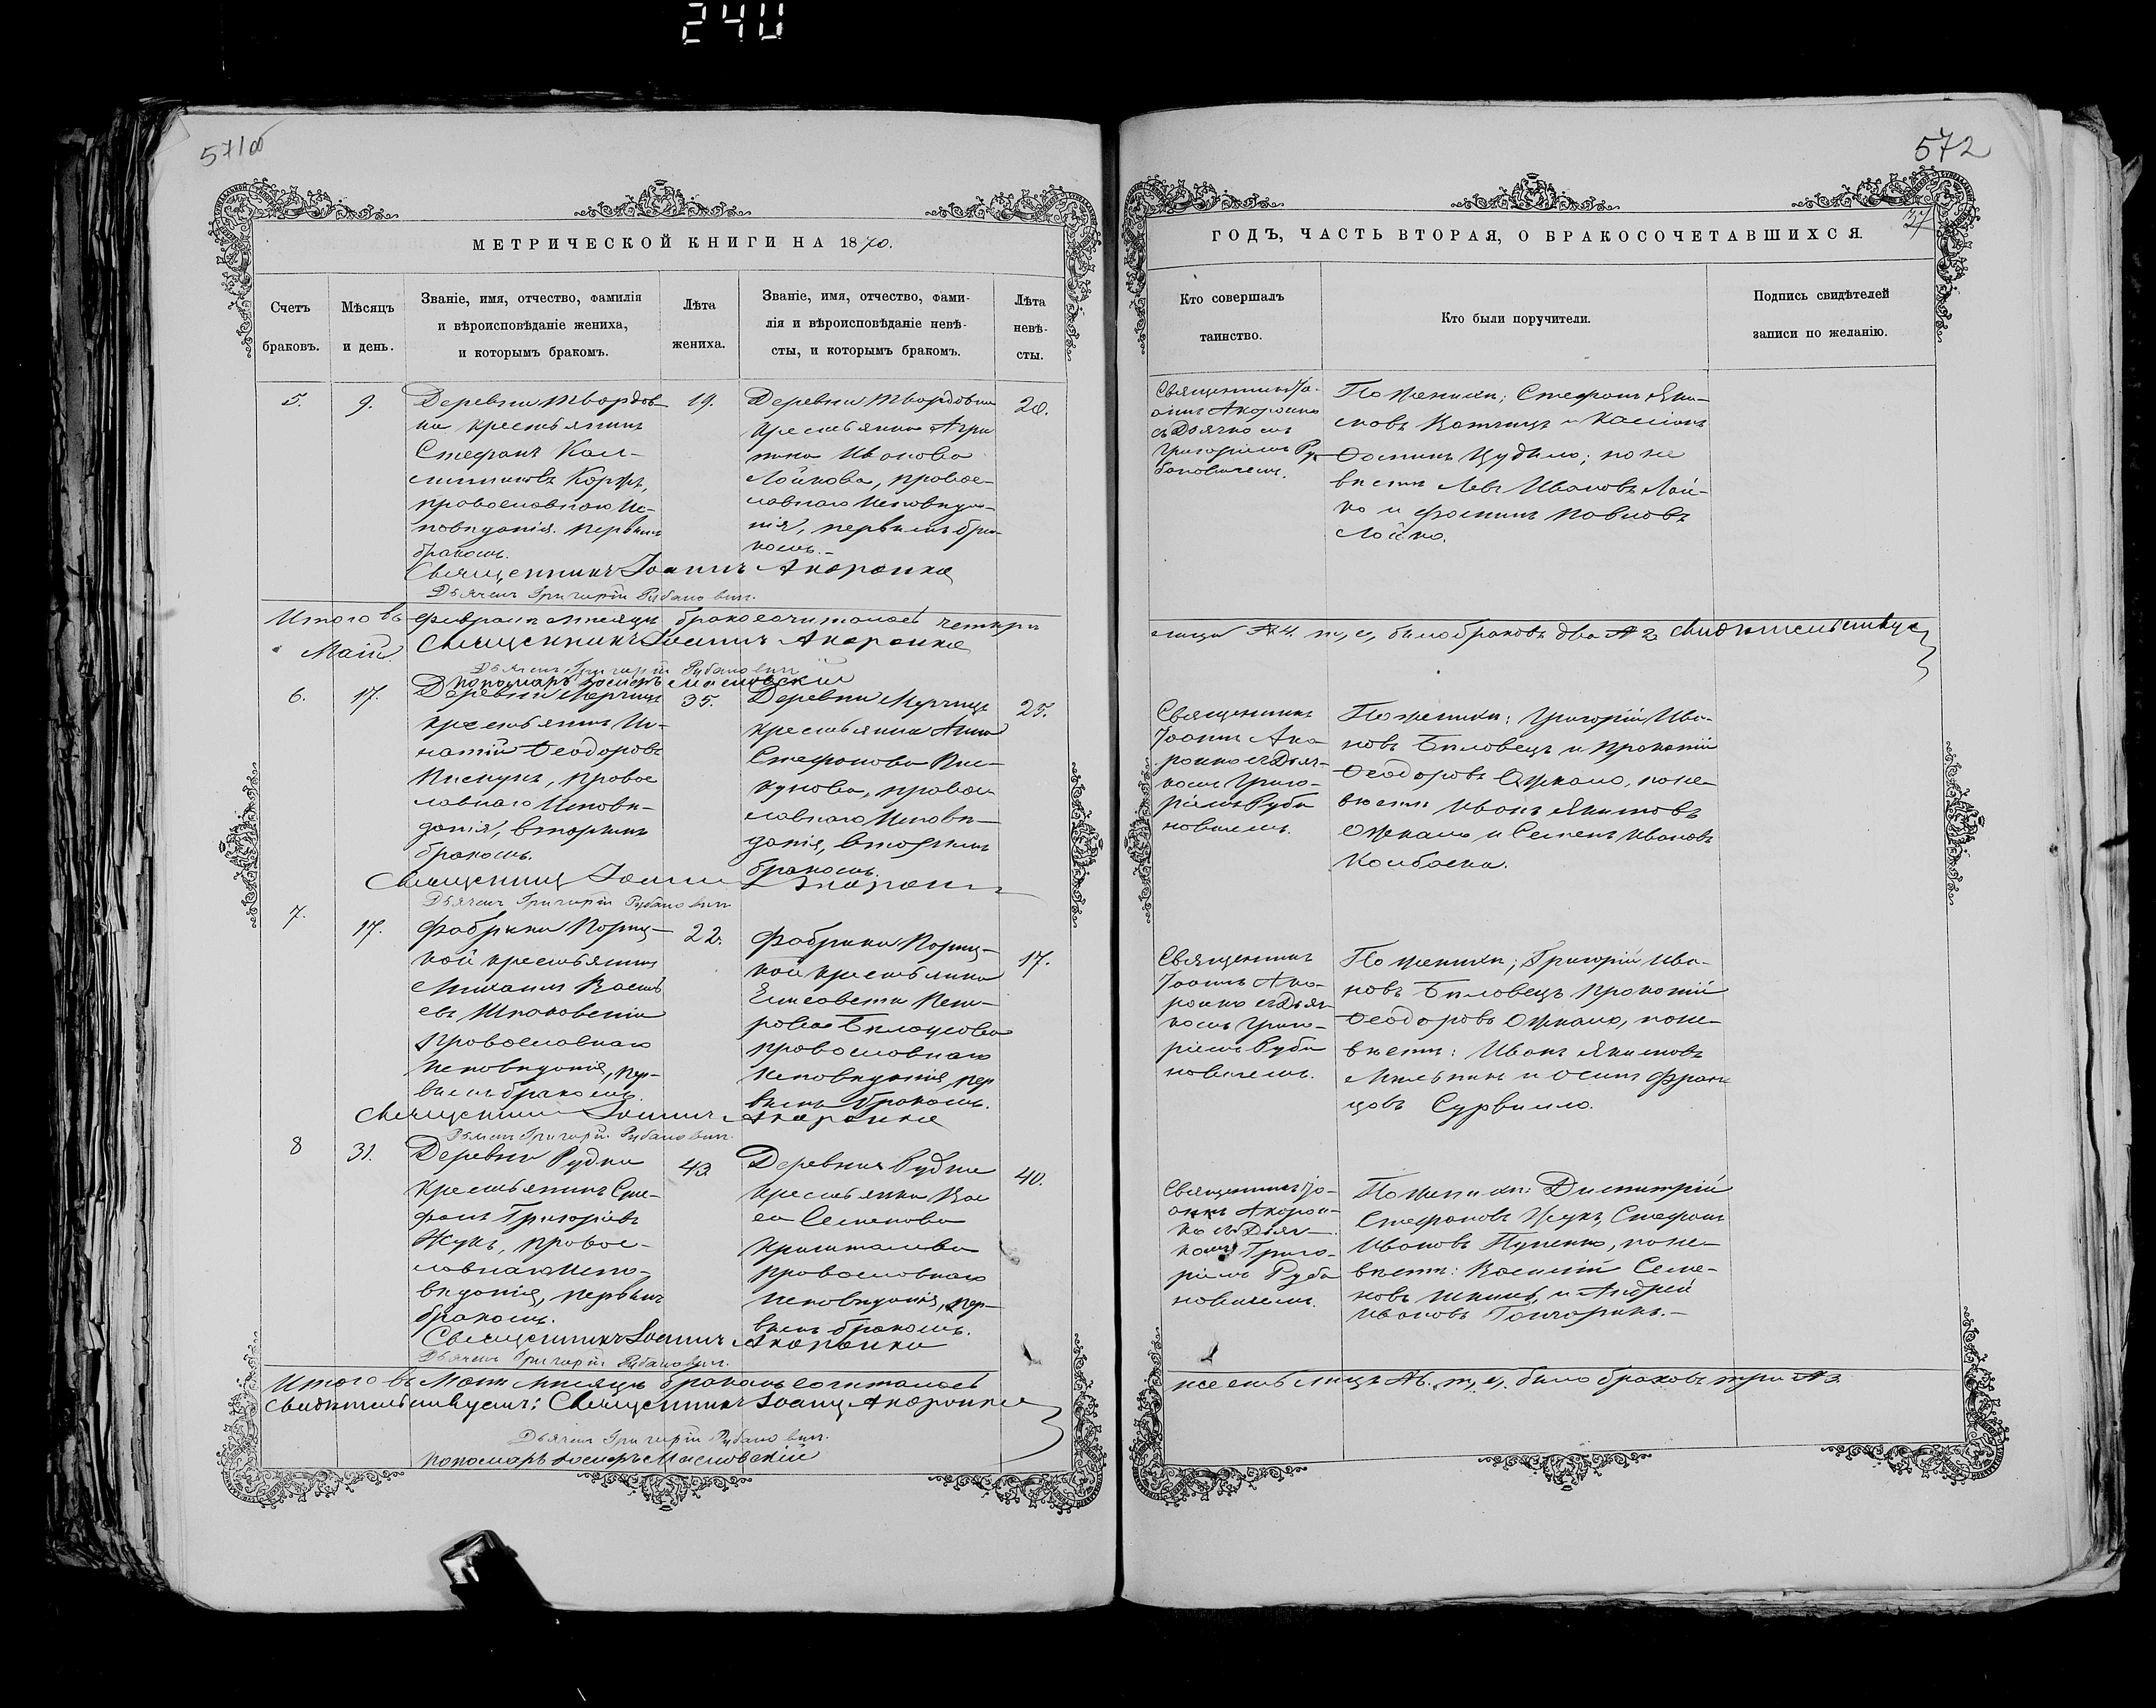 240
571об
МЕТРИЧЕСКОЙ КНИГИ НА 1870.
Счетъ браковъ.
Мѣсяцъ и день.
Званіе, имя, отчество, фамилія
и вѣроисповѣданіе жениха,
и которымъ бракомъ.
Лѣта жениха.
Званіе, имя, отчество, фами-
лія и вѣроисповѣданіе невѣ-
сты, и которымъ бракомъ.
Лѣта невѣ-
сты.
5.
9.
Деревни Твордов-
ки крестьянинъ
Стефанъ
Коржъ,
православнаго Ис-
повѣданія. первымъ
бракомъ.
19.
Деревни Твордовки
крестьянка Агри
пина Иванова
Лойкова, правос-
лавнаго Исповѣда-
нія, первымъ бра-
комъ.-
20.
Священникъ Іоаннъ Акоронко
Дьячекъ Григорій Рубановичъ.
Итого въ Февралѣ мѣсяцѣ бракосочеталось четыри
Май.
Священникъ Іоаннъ Акоронко
Дьячекъ Григорій Рубановичъ
пономарь Іосифъ Масловскій
6.
17.
Деревни Мерчицъ
крестьянинъ Иг-
натій Ѳеодоровъ
Пискунъ, правос
лавнаго Исповѣ-
данія, вторымъ
бракомъ.
35.
Деревни Мерчицъ
крестьянка Анна
Стефанова Пис-
кунова, правос
лавнаго Исповѣ-
данія, вторымъ
бракомъ.
25.
Священникъ Іоаннъ Акоронко
Дьячекъ Григорій Рубановичъ
7.
17.
Фабрики Пориц-
кой крестьянинъ
Михаилъ Василь
евъ
Православнаго
Исповѣданія, пер-
вымъ бракомъ.
22.
Фабрики Пориц-
кой крестьянка
Елисавета Пет-
рова Бѣлоусова
православнаго
Исповѣданія, пер
вымъ бракомъ.
17.
Священникъ Іоаннъ Акоронко
Дьячекъ Григорій Рубановичъ.
8
31.
Деревни Рудки
крестьянинъ Сте-
фанъ Григоріевъ
Жукъ, правос-
лавнаго Испо-
вѣданія, первымъ
бракомъ.
43
Деревни Рудки
крестьянка Вас
са Семенова
православнаго
Исповѣданія, пер-
вымъ бракомъ.
40.
Священникъ Іоаннъ Акоронко
Дьячекъ Григорій Рубановичъ.
Итого въ Маѣ мѣсяцѣ бракомъ сочеталось
свидѣтельствуемъ: Священникъ Іоаннъ Акоронко
Дьячекъ Григорій Рубановичъ.
пономарь Іосифъ Масловскій
572
37
ГОДЪ, ЧАСТЬ ВТОРАЯ, О БРАКОСОЧЕТАВШИХСЯ.
Кто совершалъ
таинство.
Кто были поручители.
Подпись свидѣтелей
записи по желанію.
Священникъ Іо-
аннъ Акоронко
съ Дьячкомъ
Григоріемъ Ру-
бановичемъ.
По женихѣ; Стефанъ Яки-
мовъ и Касіянъ
Ѳоминъ Цудило; по не
вѣстѣ Левъ Ивановъ Лой-
ко и Фоминъ Павловъ
Лойко.
лицъ № 4. т, е, было браковъ два № 2 свидѣтельствуе
Священникъ
Іоаннъ Ако
ронко съ Дьяч-
комъ Григо-
ріемъ Руба
новичемъ.
По женихѣ: Григорій Ива-
новъ Бѣловецъ и Прокопій
Ѳеодоровъ по не-
вѣстѣ Иванъ Якимовъ
и Семенъ Ивановъ
Колбаска.
Священникъ
Іоаннъ Ако-
ронко съ Дьяч
комъ Григо-
ріемъ Руба
новичемъ.
По женихѣ; Григорій Ива-
новъ Бѣловецъ Прокопій
Ѳеодоровъ по не-
вѣстѣ: Иванъ Якимовъ
Мельникъ и Осипъ Фран
цовъ Сурвилло.
Священникъ Іо-
аннъ Акорон-
ко съ Дьяч-
комъ Григо-
ріемъ Руба
новичемъ.
По женихѣ: Димитрій
Стефановъ Жукъ, Стефанъ
Ивановъ Пупенко, по не-
вѣстѣ: Василій Семе-
новъ и Андрей
Ивановъ Гончарикъ.-
шесть лицъ № 6. т, е, было браковъ три № 3